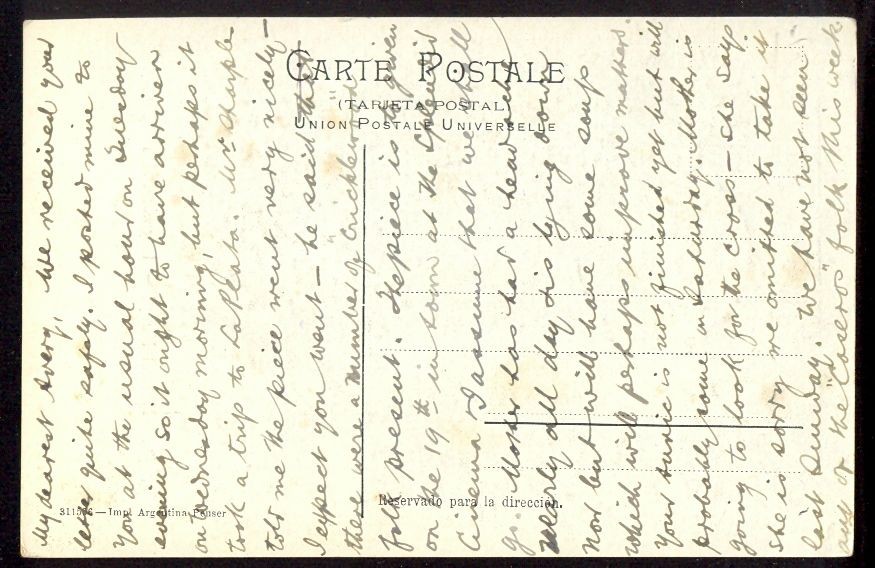 CARTE POSTALE
(TARJETA POSTAL)
UNION POSTALE UNIVERSELLE
Reservado para la dirección.
—Impt Argentina Peuser
My dearest Avery, We received your
letter quite safely. I posted mine to
you at the usual hour on Tuesday
evening so it ought to have arriven
on Wednesday morning, but perhaps it
took a trip to La Plata. Mr
told me the piece went very nicely—
I expect you went — he said that
there were a number of Cricklewood
folk present. The piece is to given
on the 19th in town at the
Cinema I assume that we shall
go. Mother has had a head ache
nearly all day & is lying down
now but will have some soup
which will perhaps improve matters.
Your tunic is not finished yet but will
probably come on Saturday. Mother is
going to look for the cross — she says
she is sorry we omitted to take it
last Sunday. We have not seen
any of the "Caseros" folk this week